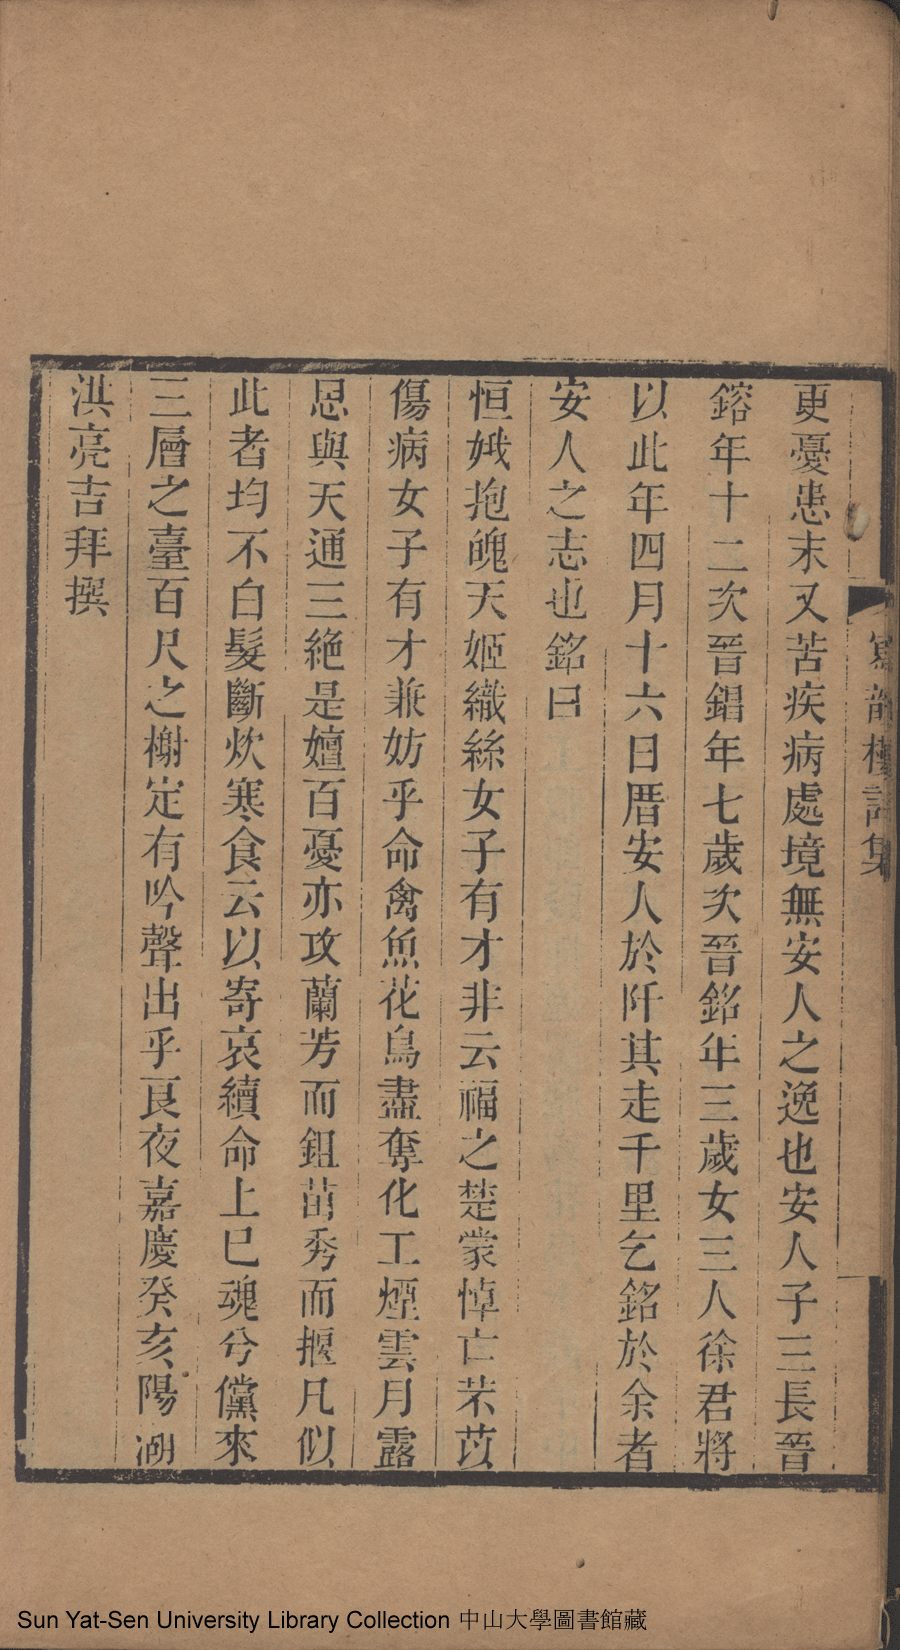 更憂患末又苦疾病處境無安人之逸也安人子三長晉
鎔年十二次晉錩年七歲次晉銘年三歲女三人徐君將
以此年四月十六日厝安人於阡其走千里乞銘於余者
安人之志也銘曰
恒娥抱魄天姬織絲女子有才非云福之楚蒙悼亡芣苡
傷病女子有才兼妨乎命禽魚花鳥盡奪化工煙雲月露
恩與天通三絶是嬗百憂亦攻蘭芳而鉏苗秀而揠凡似
此者均不白髮斷炊寒食云以寄哀續命上巳魂兮儻來
三層之臺百尺之榭定有吟聲出乎良夜嘉慶癸亥陽湖
洪亮吉拜撰
寫韻樓詩集
Sun Yat-Sen University Library Collection 中山大學圖書館藏